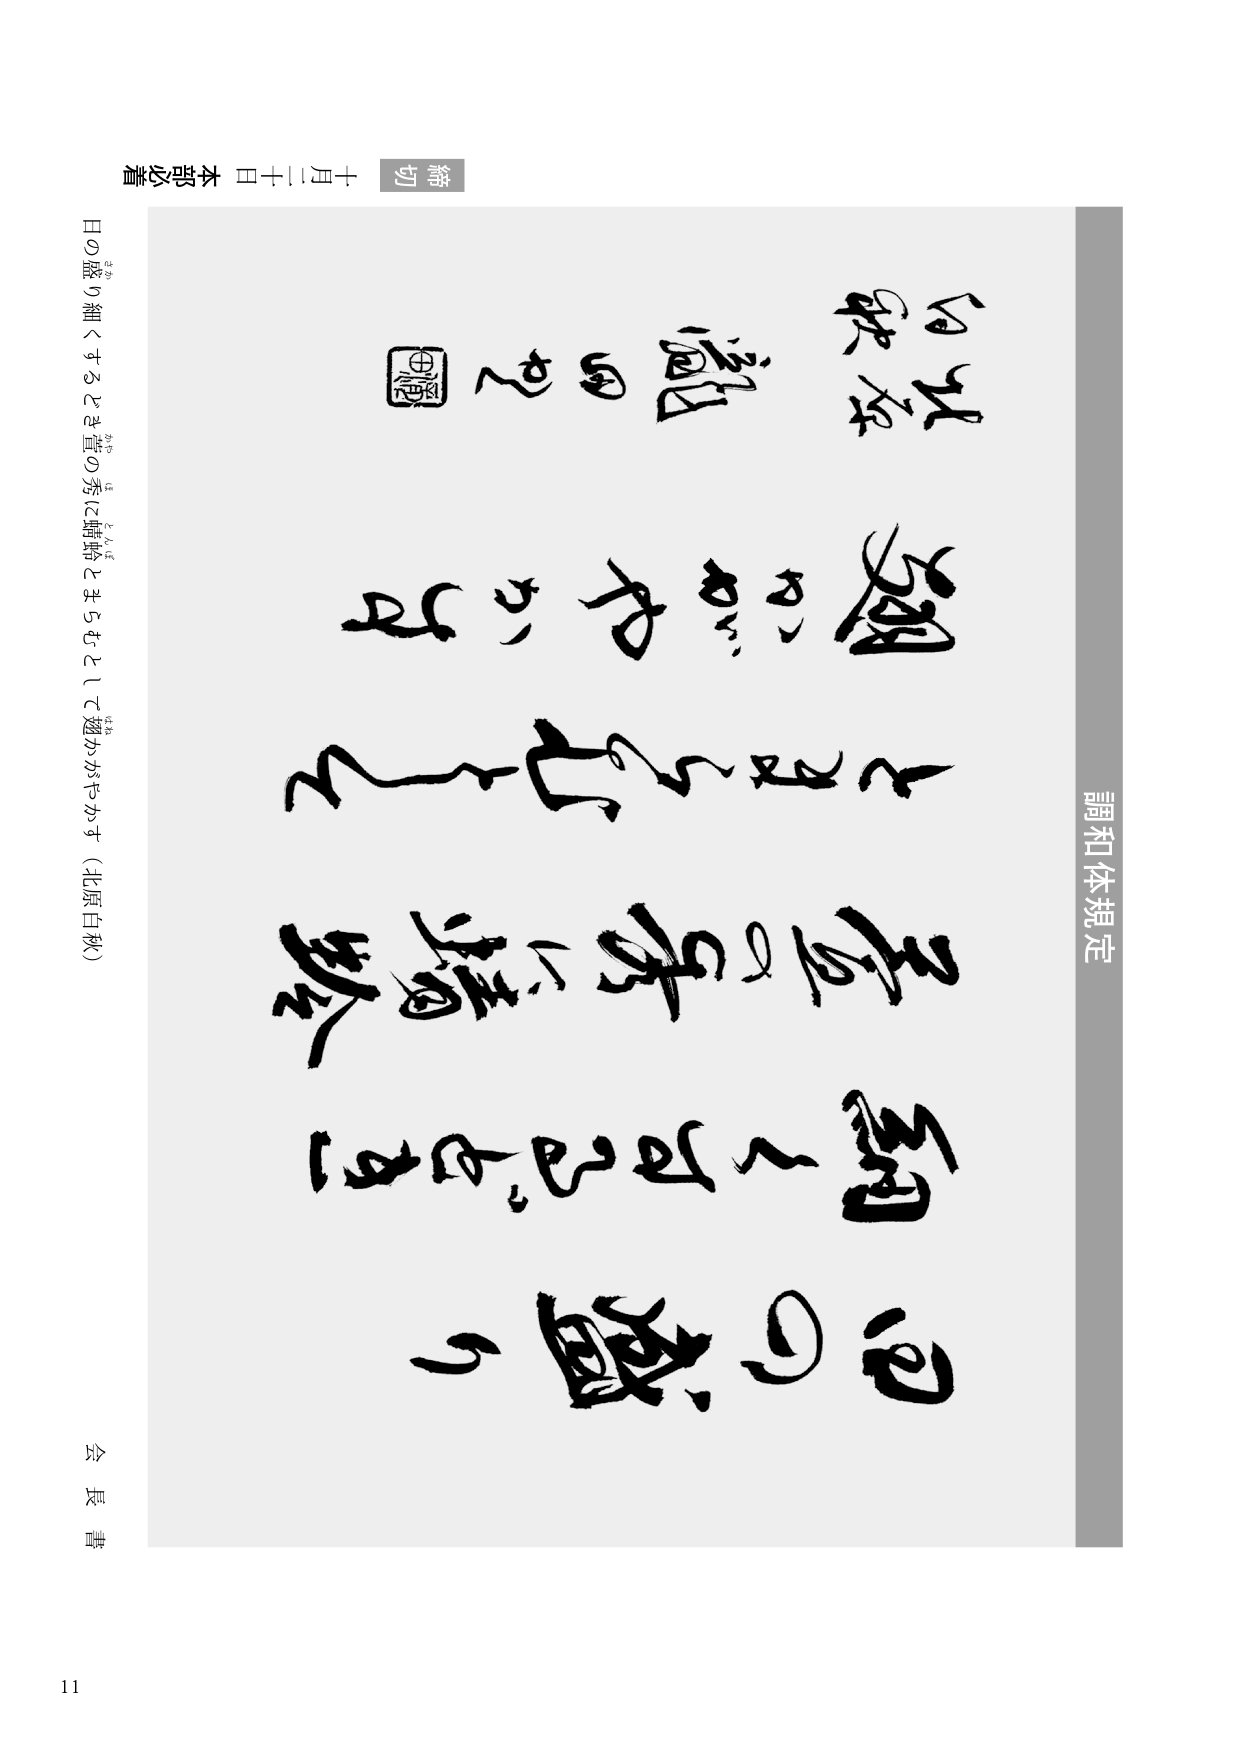 調和体規定
日の盛り
細くするどき
萱の秀に蜻蛉
とまらむとして
翅かがやかす
北原
白秋
締切 十月二十日 本部必着
日の盛り細くするどき萱の秀に蜻蛉とまらむとして翅かがやかす（北原白秋）
さか かや ほ とんぼ はね
会長書
11